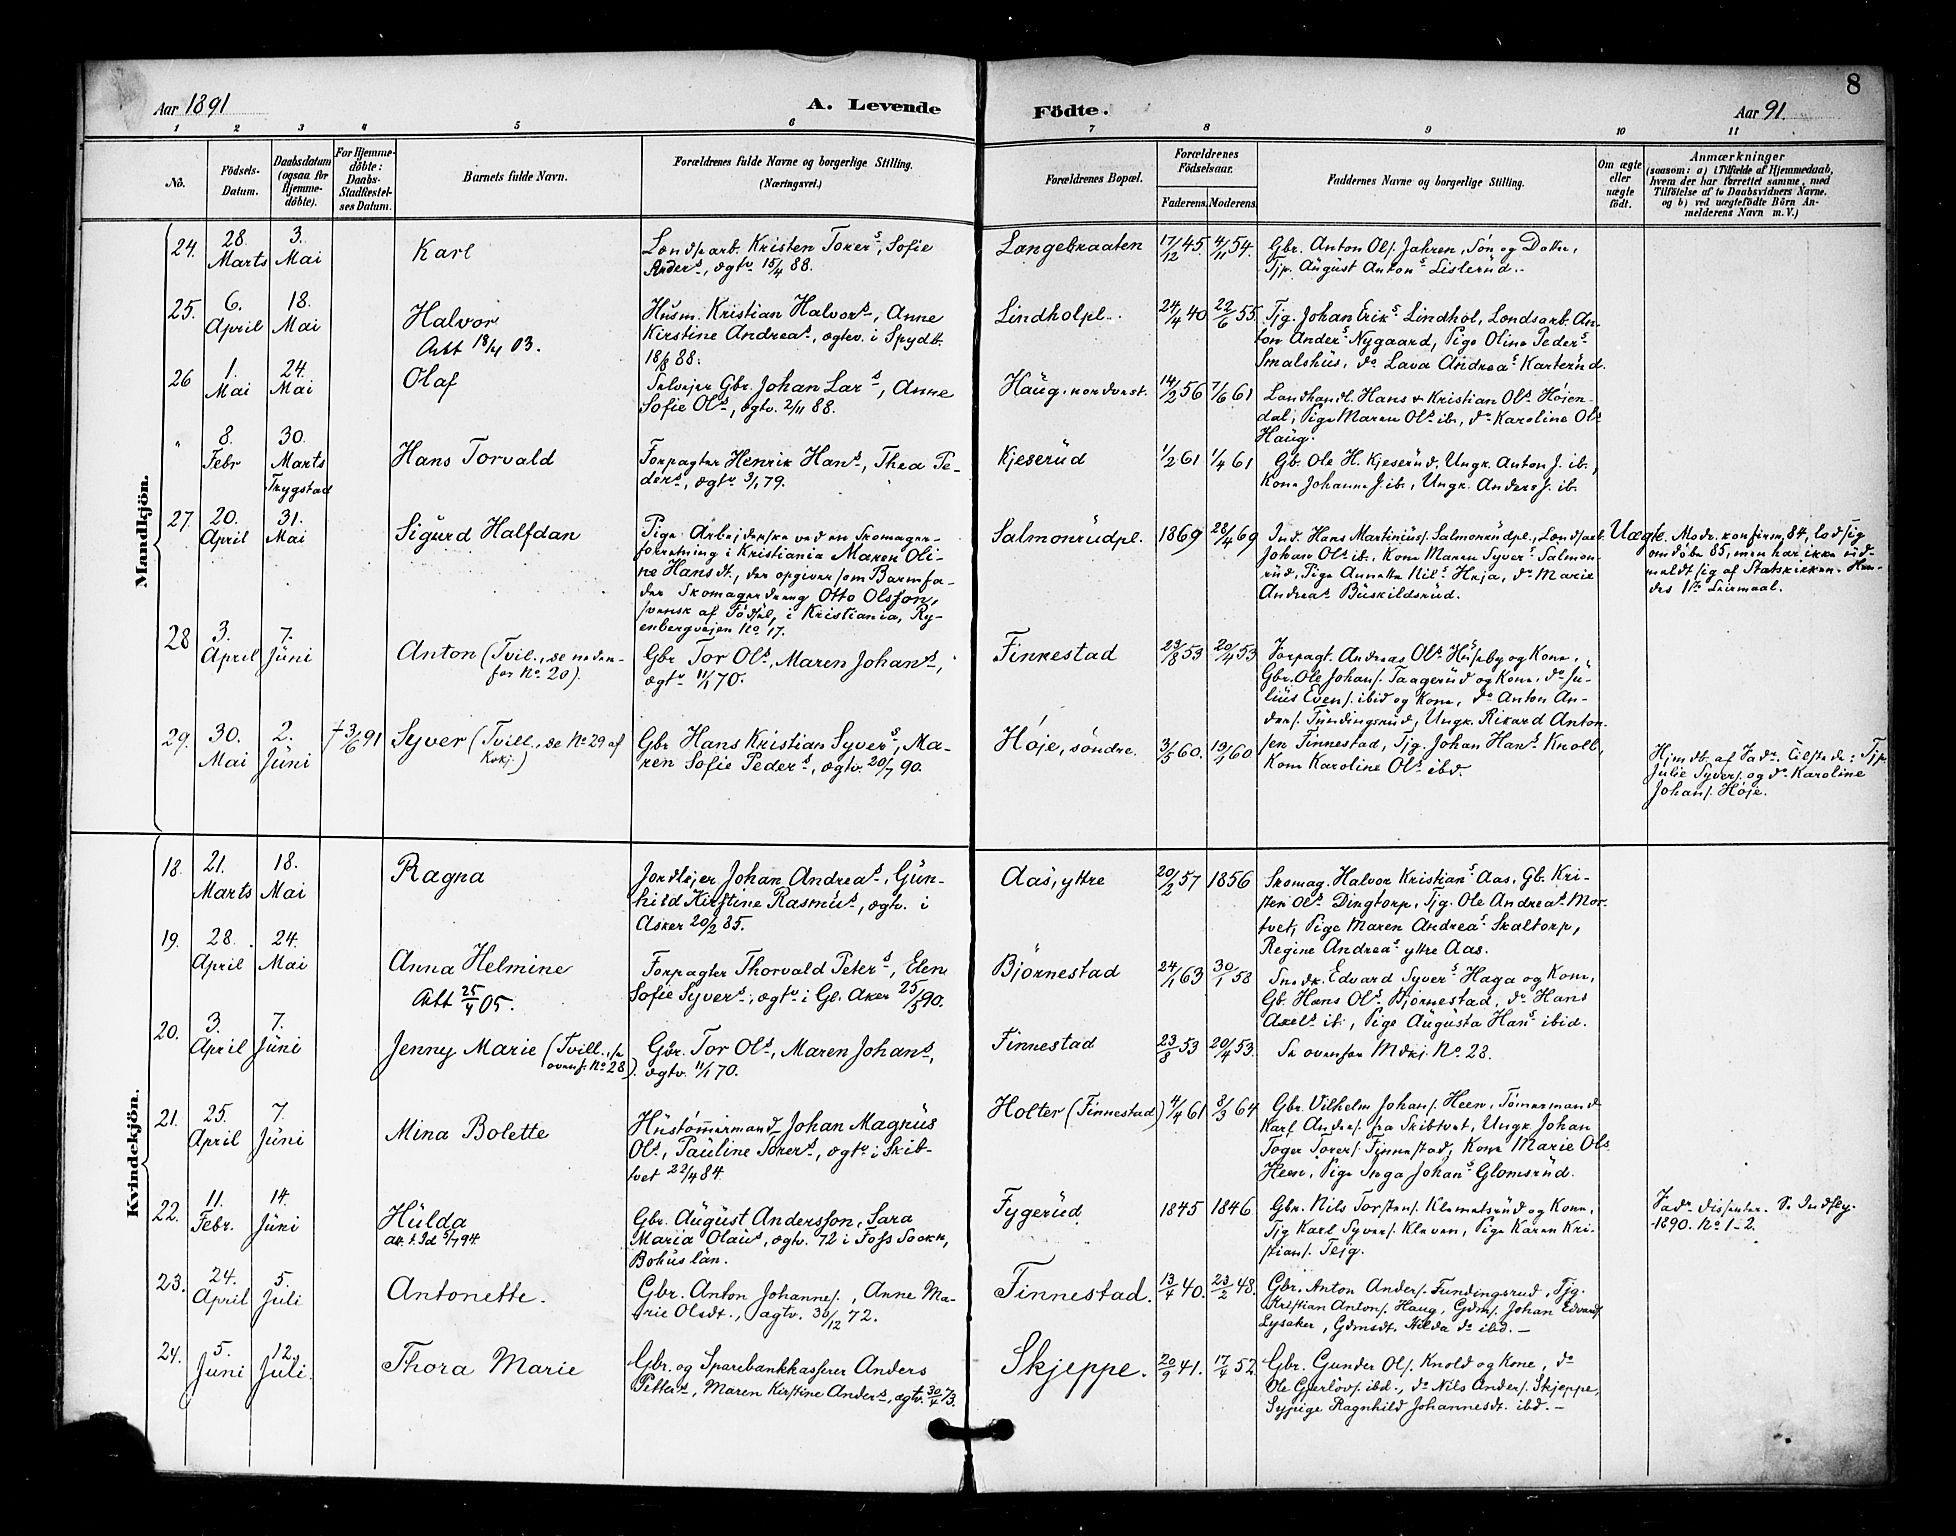 8
Aar 1891
A. Levende
Födte.
Aar 91.
1 2 3 4 5 6 7 8 9 10 11
No.
Födsels-
Datum.
Daabsdatum
(ogsaa for
Hjemme-
döbte).
For Hjemme-
döbte:
Daabs-
Stadfæstel-
ses Datum.
Barnets fulde Navn.
Forældrenes fulde Navne og borgerlige Stilling.
(Næringsvei.)
Forældrenes Bopæl.
Forældrenes
Födselsaar.
Faderens. Moderens.
Faddernes Navne og borgerlige Stilling.
Om ægte
eller
uægte
födt.
Anmærkninger
(saasom: a) i Tilfælde af Hjemmedaab,
hvem der har forrettet samme, med
Tilföielse af to Daabsvidners Navne.
og b) ved uægtefödte Börn An-
melderens Navn m. V.)
Mandkjön.
24. 28. Marts 3. Mai
Karl
Landsarb. Kristen Torers, Sofie
Anders, ægtv. 15/4 88.
Langebraaten 17/12 45 4/11 54.
Gbr. Anton Ols. Jahren, Søn og Datter,
Tjp. August Antons Lislerud.
25. 6. April 18. Mai
Halvor
Att 18/4 03.
Husm. Kristian Halvors, Anne
Kirstine Andreas, ægtev. i Spydb.
18/8 88.
Lindholpl. 24/4 40 22/6 55.
Tjg. Johan Eriks Lindhol, Landsarb. An-
ton Anders Nygaard, Pige Oline Peders
Smalshus, do Lava Andreas Karterud.
26 1. Mai 24. Mai
Olaf
Selvejer Gbr. Johan Lars, Anne
Sofie Ols, ægtv. 2/11 88.
Haug, nordvest. 14/2 56 7/6 61
Landhandl. Hans & Kristian Ols Højen-
dal, Pige Maren Ols ib., do Karoline Ols
Haug.
" 8. Febr 30. Marts
Trygstad
Hans Torvald
Forpagter Henrik Hans, Thea Pe-
ders, ægtv 3/1 79.
Kjeserud 1/2 61 1/4 61
Gb. Ole H. Kjeserud, Ungk. Anton J. ib.,
Kone Johanne J. ib., Ungk. Anders J. ib.
27. 20. April 31. Mai
Sigurd Halfdan
Pige Arbejderske ved en Skomager-
forretning i Kristiania Maren Oli-
ne Hansdt., der opgiver som Barnefa-
der Skomagerdreng Otto Olsson,
svensk af Fødsel, i Kristiania, Ry-
enbergvejen No 17.
Salmonrudpl. 1869 28/4 69
Ind. Hans Martinius. Salmonrudpl., Landsarb.
Johan Ols ib., Kone Maren Syvers Salmon-
rud, Pige Annette Nils Heja, do Marie
Andreas Buskildsrud.
Uægte.
Modr. konfirm. 84, lod sig
omdøbe 85, men har ikke ud-
meldt sig af Statskirken. Hen-
des 1ste Leiermaal.
28 3. April 7. Juni
Anton (Tvil., se neden-
for No 20).
Gbr Tor Ols, Maren Johans,
ægtv 11/1 70.
Finnestad 23/8 53 20/4 53
Forpagt. Andreas Ols Huseby og Kone,
Gbr. Ole Johans. Taagerud og Kone, do Ju-
lius Evens. ibid og Kone, do Anton An-
ders. Fundingsrud, Ungk. Rikard Anton-
sen Finnestad, Tjg. Johan Hans Knoll,
Kone Karoline Ols ibd.
29. 30. Mai 2. Juni † 3/6 91
Syver (Tvill., se No 29 af
Kvkj.)
Gbr Hans Kristian Syvers, Ma-
ren Sofie Peders, ægtv. 20/7 90.
Høje, søndre. 3/5 60. 19/1 60
Hjmdb. af Fadr. Tilstede: Tjp
Julie Syvers. og do Karoline
Johans. Høje.
Kvindekjön.
18. 21. Marts 18. Mai
Ragna
Jordlejer Johan Andreas, Gun-
hild Kirstine Rasmus, ægtv. i
Asker 20/2 85.
Aas, ytre 20/2 57 1856
Skomag. Halvor Kristians Aas, Gb. Kri-
sten Ols Dingtorp, Tjg. Ole Andreas Mor-
tvet, Pige Maren Andreas Skaltorp,
Regine Andreas ytre Aas.
19. 28. April 24. Mai
Anna Helmine
Att 25/4 05.
Forpagter Thorvald Peters, Elen
Sofie Syvers, ægtv i Gl. Aker 25/5 90.
Bjørnestad 24/1 63 30/1 58
Snedk. Edvard Syvers Haga og Kone,
Gb. Hans Ols Bjørnestad, do Hans
Axels ib., Pige Augusta Hans ibid.
20. 3. April 7. Juni
Jenny Marie (Tvill., se
ovenf. No 28).
Gbr. Tor Ols, Maren Johans,
ægtv. 11/1 70.
Finnestad 23/8 53 20/4 53.
Se ovenfor Mdkj. No 28.
21. 25. April 7. Juni
Mina Bolette
Hustømmermand Johan Magnus
Ols, Pauline Torers, ægtv i Skib-
tvet 22/4 84.
Holter (Finnestad) 4/4 61 8/3 64
Gbr. Vilhelm Johans. Heen, Tømermand
Karl Anders. fra Skibtvet, Ungk Johan
Toger Torers. Finnestad, Kone Marie Ols
Heen, Pige Inga Johans Glomsrud.
22. 11. Febr. 14. Juni
Hulda
Att. t. Id 5/7 94.
Gbr. August Andersson, Sara
Maria Olaus, ægtv. 72 i Foss Sockn,
Bohuslän.
Fygerud 1845 1846
Gbr. Nils Torstens. Klemetsrud og Kone,
Tjg Karl Syvers. Kleven, Pige Karen Kri-
stians. Tejg.
Fadr dissenter. Se Indfly.
1890. No 1-2.
23. 24. April 5. Juli
Antonette.
Gbr. Anton Johannes., Anne Ma-
rie Olsdt., ægtv. 30/12 72.
Finnestad. 13/4 40. 23/2 48.
Gbr. Anton Anders. Fundingsrud, Tjg.
Kristian Antons. Haug, Gdms. Johan Edvards.
Lysaker, Gdmsdt. Hilda do ibd. —
24. 5. Juni 12. Juli.
Thora Marie
Gbr. og Sparebankkasserer Anders
Petters, Maren Kirstine Anders, ægtv. 30/4 73.
Skjeppe. 20/9 41. 17/4 52.
Gbr. Gunder Ols. Knold og Kone, do
Ole Gjerløvs. ibd., do Nils Anders. Skjeppe,
Sypige Ragnhild Johannesdt. ibd. —